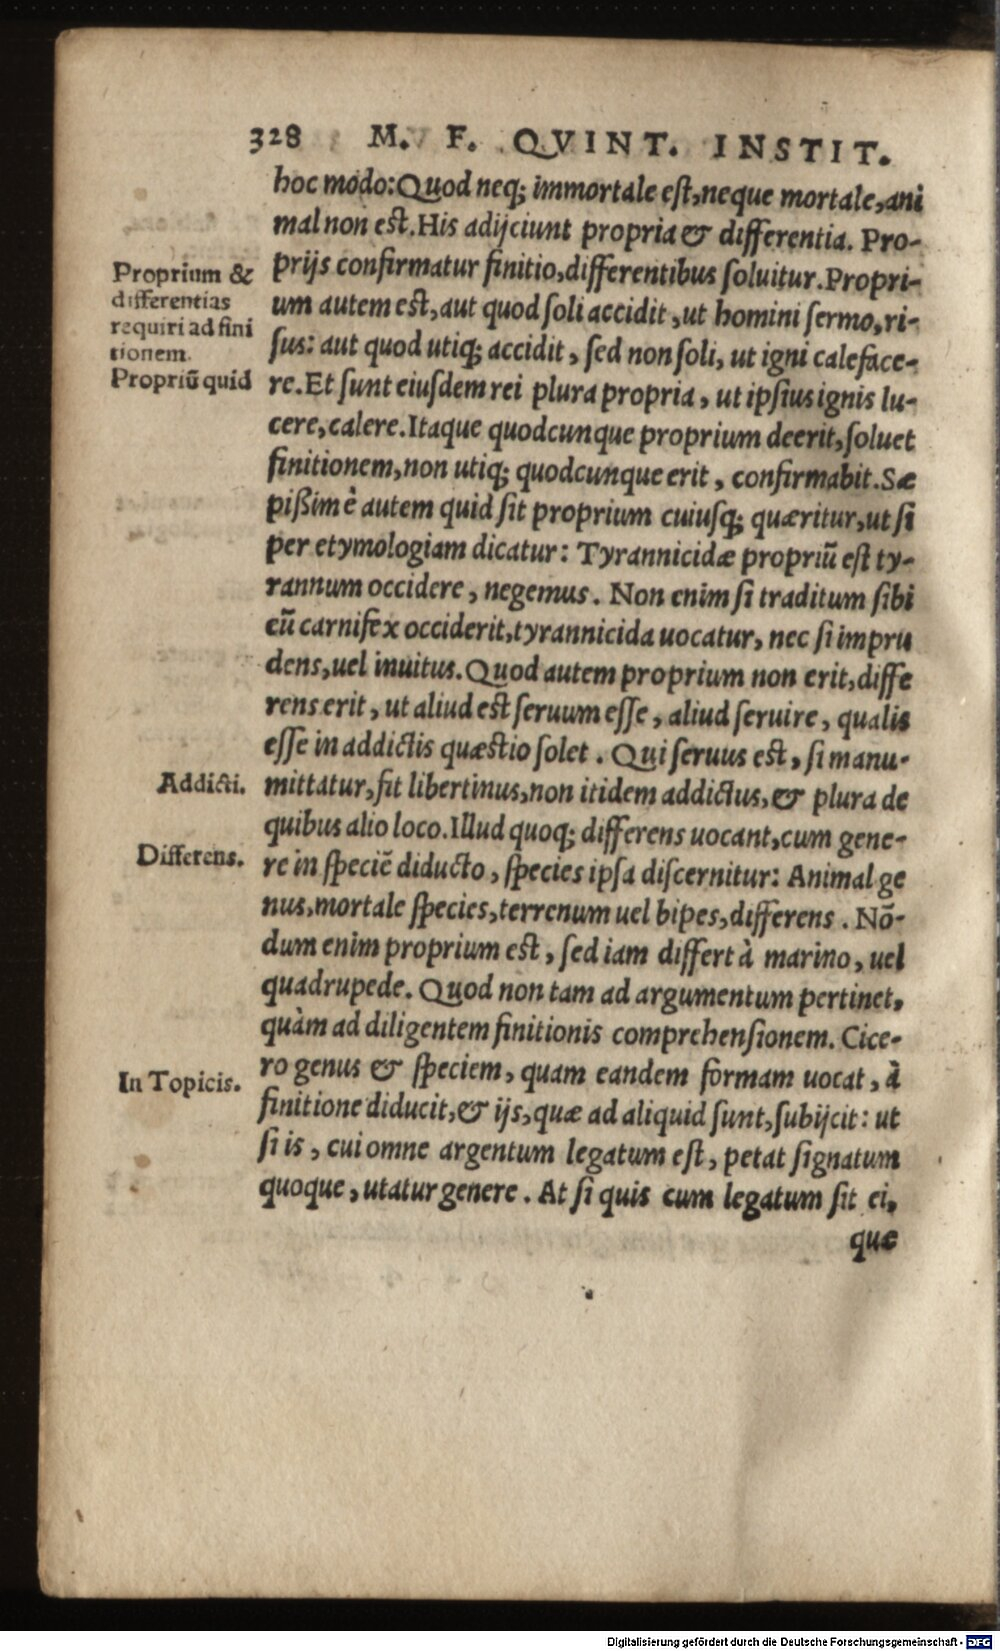 328 M. F. QVINT. INSTIT.
hoc modo: Quod neq; immortale est, neque mortale, ani
mal non est. His adijciunt propria & differentia. Pro-
prijs confirmatur finitio, differentibus soluitur. Propri-
um autem est, aut quod soli accidit, ut homini sermo, ri-
sus: aut quod utiq; accidit, sed non soli, ut igni caleface-
re. Et sunt eiusdem rei plura propria, ut ipsius ignis lu-
cere, calere. Itaque quodcunque proprium deerit, soluet
finitionem, non utiq; quodcunque erit, confirmabit. Sæ
pißimè autem quid sit proprium cuiusq; quæritur, ut si
per etymologiam dicatur: Tyrannicidæ propriū est ty-
rannum occidere, negemus. Non enim si traditum sibi
eū carnifex occiderit, tyrannicida uocatur, nec si impru
dens, uel inuitus. Quod autem proprium non erit, diffe
rens erit, ut aliud est seruum esse, aliud seruire, qualis
esse in addictis quæstio solet. Qui seruus est, si manu-
mittatur, fit libertinus, non itidem addictus, & plura de
quibus alio loco. Illud quoq; differens uocant, cum gene-
re in speciē diducto, species ipsa discernitur: Animal ge
nus, mortale species, terrenum uel bipes, differens. Nō-
dum enim proprium est, sed iam differt à marino, uel
quadrupede. Quod non tam ad argumentum pertinet,
quàm ad diligentem finitionis comprehensionem. Cice-
ro genus & speciem, quam eandem formam uocat, à
finitione diducit, & ijs, quæ ad aliquid sunt, subijcit: ut
si is, cui omne argentum legatum est, petat signatum
quoque, utatur genere. At si quis cum legatum sit ei,
quæ
Proprium &
differentias
requiri ad fini
tionem.
Propriū quid
Addicti.
Differens.
In Topicis.
Digitalisierung gefördert durch die Deutsche Forschungsgemeinschaft - DFG